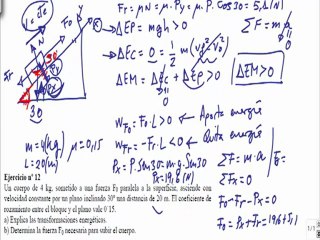 F_r = μN = μ·P_y = μ·P·Cos30 = 5,1(N)
→ ΔEP = mgh > 0
ΣF = m·a
→ ΔEC = 0 = 1/2 m (v_f² - v_0²)
→ ΔEM = ΔEc + ΔEp > 0
ΔEM > 0
W_F0 = F_0·L > 0 ← Aporta energía
W_Fr = -F_r·L < 0 ← Quita energía
P_x = P.Sen30 = mg.Sen30
P_x = 19,6(N)
ΣF = m·a
ΣF_x = 0
F_0 - F_r - P_x = 0
F_0 = P_x + F_r = 19,6 + 5,1
30
m = 4(kg)
μ = 0,15
L = 20(m)
Ejercicio nº 12
Un cuerpo de 4 kg, sometido a una fuerza F₀ paralela a la superficie, asciende con
velocidad constante por un plano inclinado 30º una distancia de 20 m. El coeficiente de
rozamiento entre el bloque y el plano vale 0'15.
a) Explica las transformaciones energéticas.
b) Determina la fuerza F₀ necesaria para subir el cuerpo.